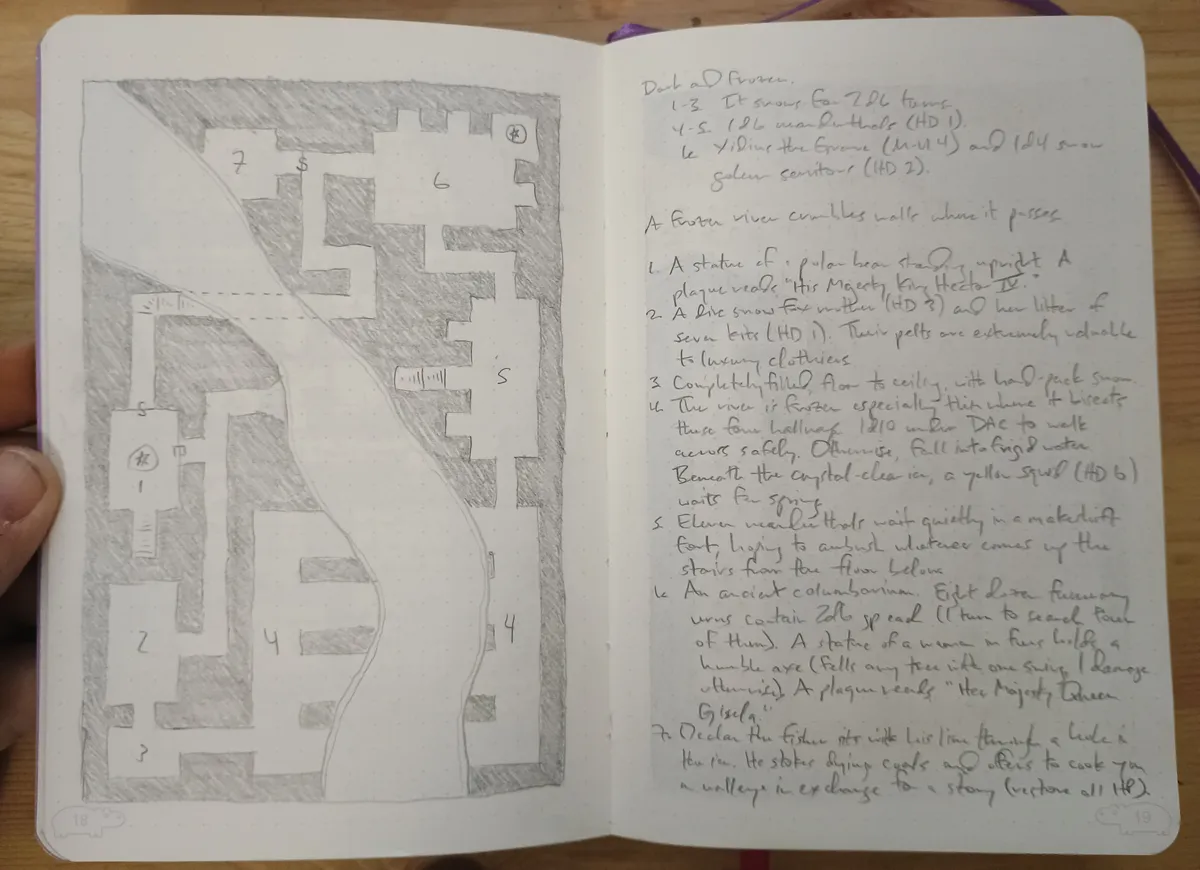 7
S
6
5
S
1
2
4
4
3
18
Dark and Frozen.
1-3 It snows for 2d6 turns
4-5 1d6 neanderthals (HD 1).
6 the (M-U 4) and 1d4 snow
golem servitors (HD 2).
A frozen river crumbles walls where it passes
1. A statue of a polar bear standing upright. A
plaque reads "His Majesty King Hector IV."
2. A dire snow fox mother (HD 3) and her litter of
seven kits (HD 1). Their pelts are extremely valuable
to luxury clothiers
3. Completely filled, floor to ceiling, with hard-pack snow.
4. The river is frozen especially thin where it bisects
these four hallways 1d10 under DAC to walk
across safely. Otherwise, fall into frigid water
Beneath the crystal-clear ice, a yellow squid (HD 6)
waits for spring
5. Eleven neanderthals wait quietly in a makeshift
fort, hoping to ambush whatever comes up the
stairs from the floor below
6. An ancient columbarium. Eight dozen funerary
urns contain 2d6 gp each (1 turn to search four
of them). A statue of a woman in furs holds a
humble axe (fells any tree with one swing, 1 damage
otherwise). A plaque reads "Her Majesty Queen
Gisela."
7. Declan the fisher sits with his line through a hole in
the ice. He stokes dying coals and offers to cook you
a walleye in exchange for a story (restore all HP).
19